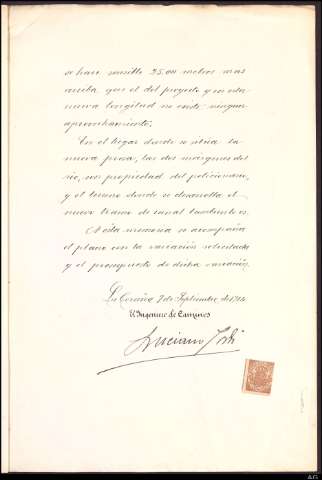 se hace sencillo 25.00 metros mas
arriba que el del proyecto y en esta
nueva longitud no existe ningun
aprovechamiento.
En el lugar donde se situa la
nueva presa, las dos margenes del
rio, son propiedad del peticionario,
y el terreno donde se desarrolla el
nuevo tramo de canal tambien es.
A esta memoria se acompaña
el plano con la variación solicitada
y el presupuesto de dicha variación.
La Coruña 7 de Septiembre de
El Ingeniero de Caminos
Luciano